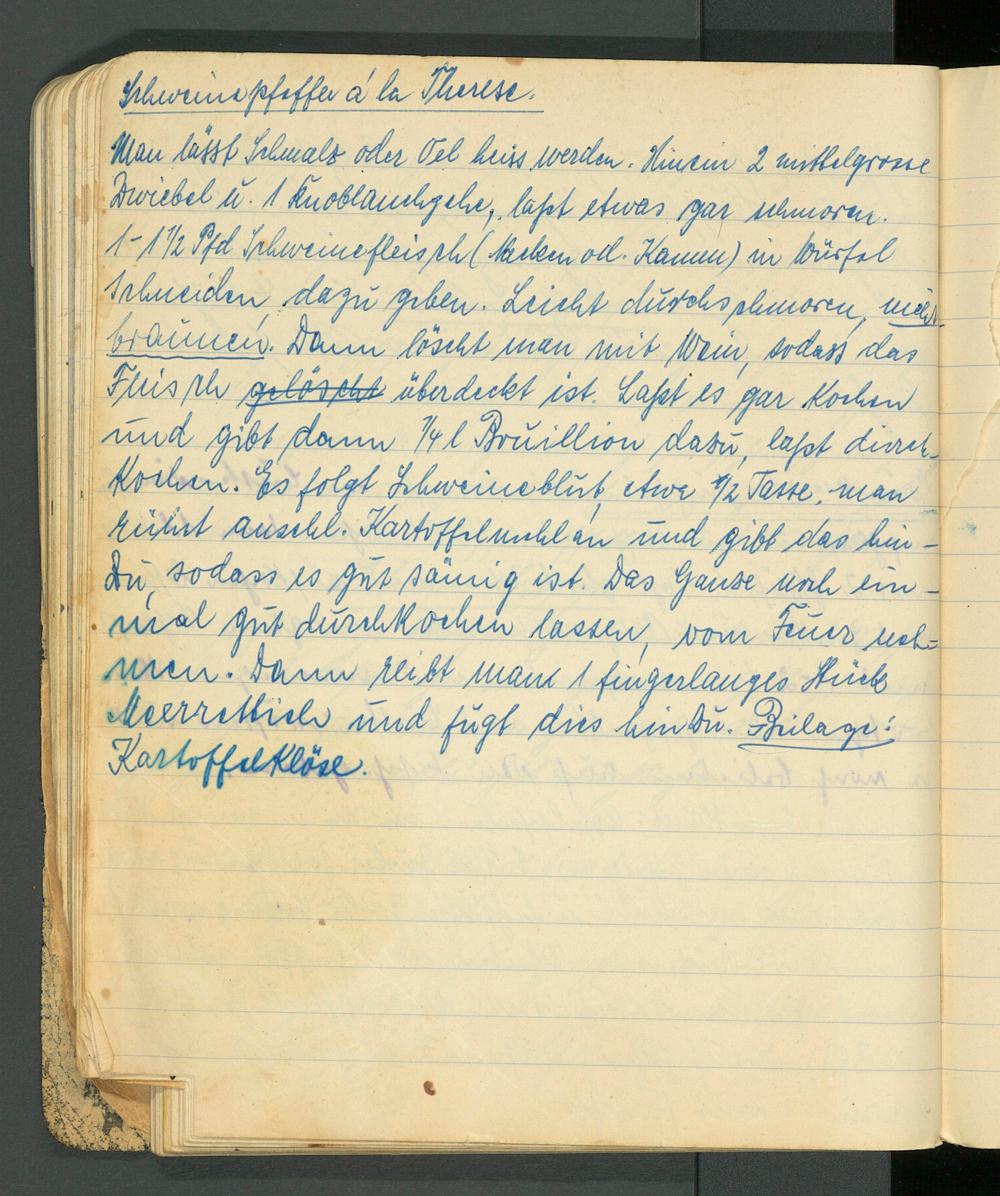 Schweinepfeffer á la Therese.
Man lässt Schmalz oder Oel heiss werden. Hinein 2 mittelgrosse
Zwiebel u. 1 Knoblauchzehe, laßt etwas gar schmoren.
1-1 1/2 Pfd Schweinefleisch (Nacken od. Kamm) in Würfel
schneiden dazu geben. Leicht durchschmoren, nicht
bräunen!. Dann löscht man mit Wein, sodass das
Fleisch gelöscht überdeckt ist. Laßt es gar kochen
und gibt dann 1/4 l Bruillion dazu, laßt durch-
kochen. Es folgt Schweineblut, etwa 1/2 Tasse, man
rührt anschl. Kartoffelmehl an und gibt das hin-
zu, sodass es gut sämig ist. Das Ganze noch ein-
mal gut durchkochen lassen, vom Feuer neh-
men. Dann reibt man 1 fingerlanges Stück
Meerrettich und fügt dies hinzu. Beilage:
Kartoffelklöse.